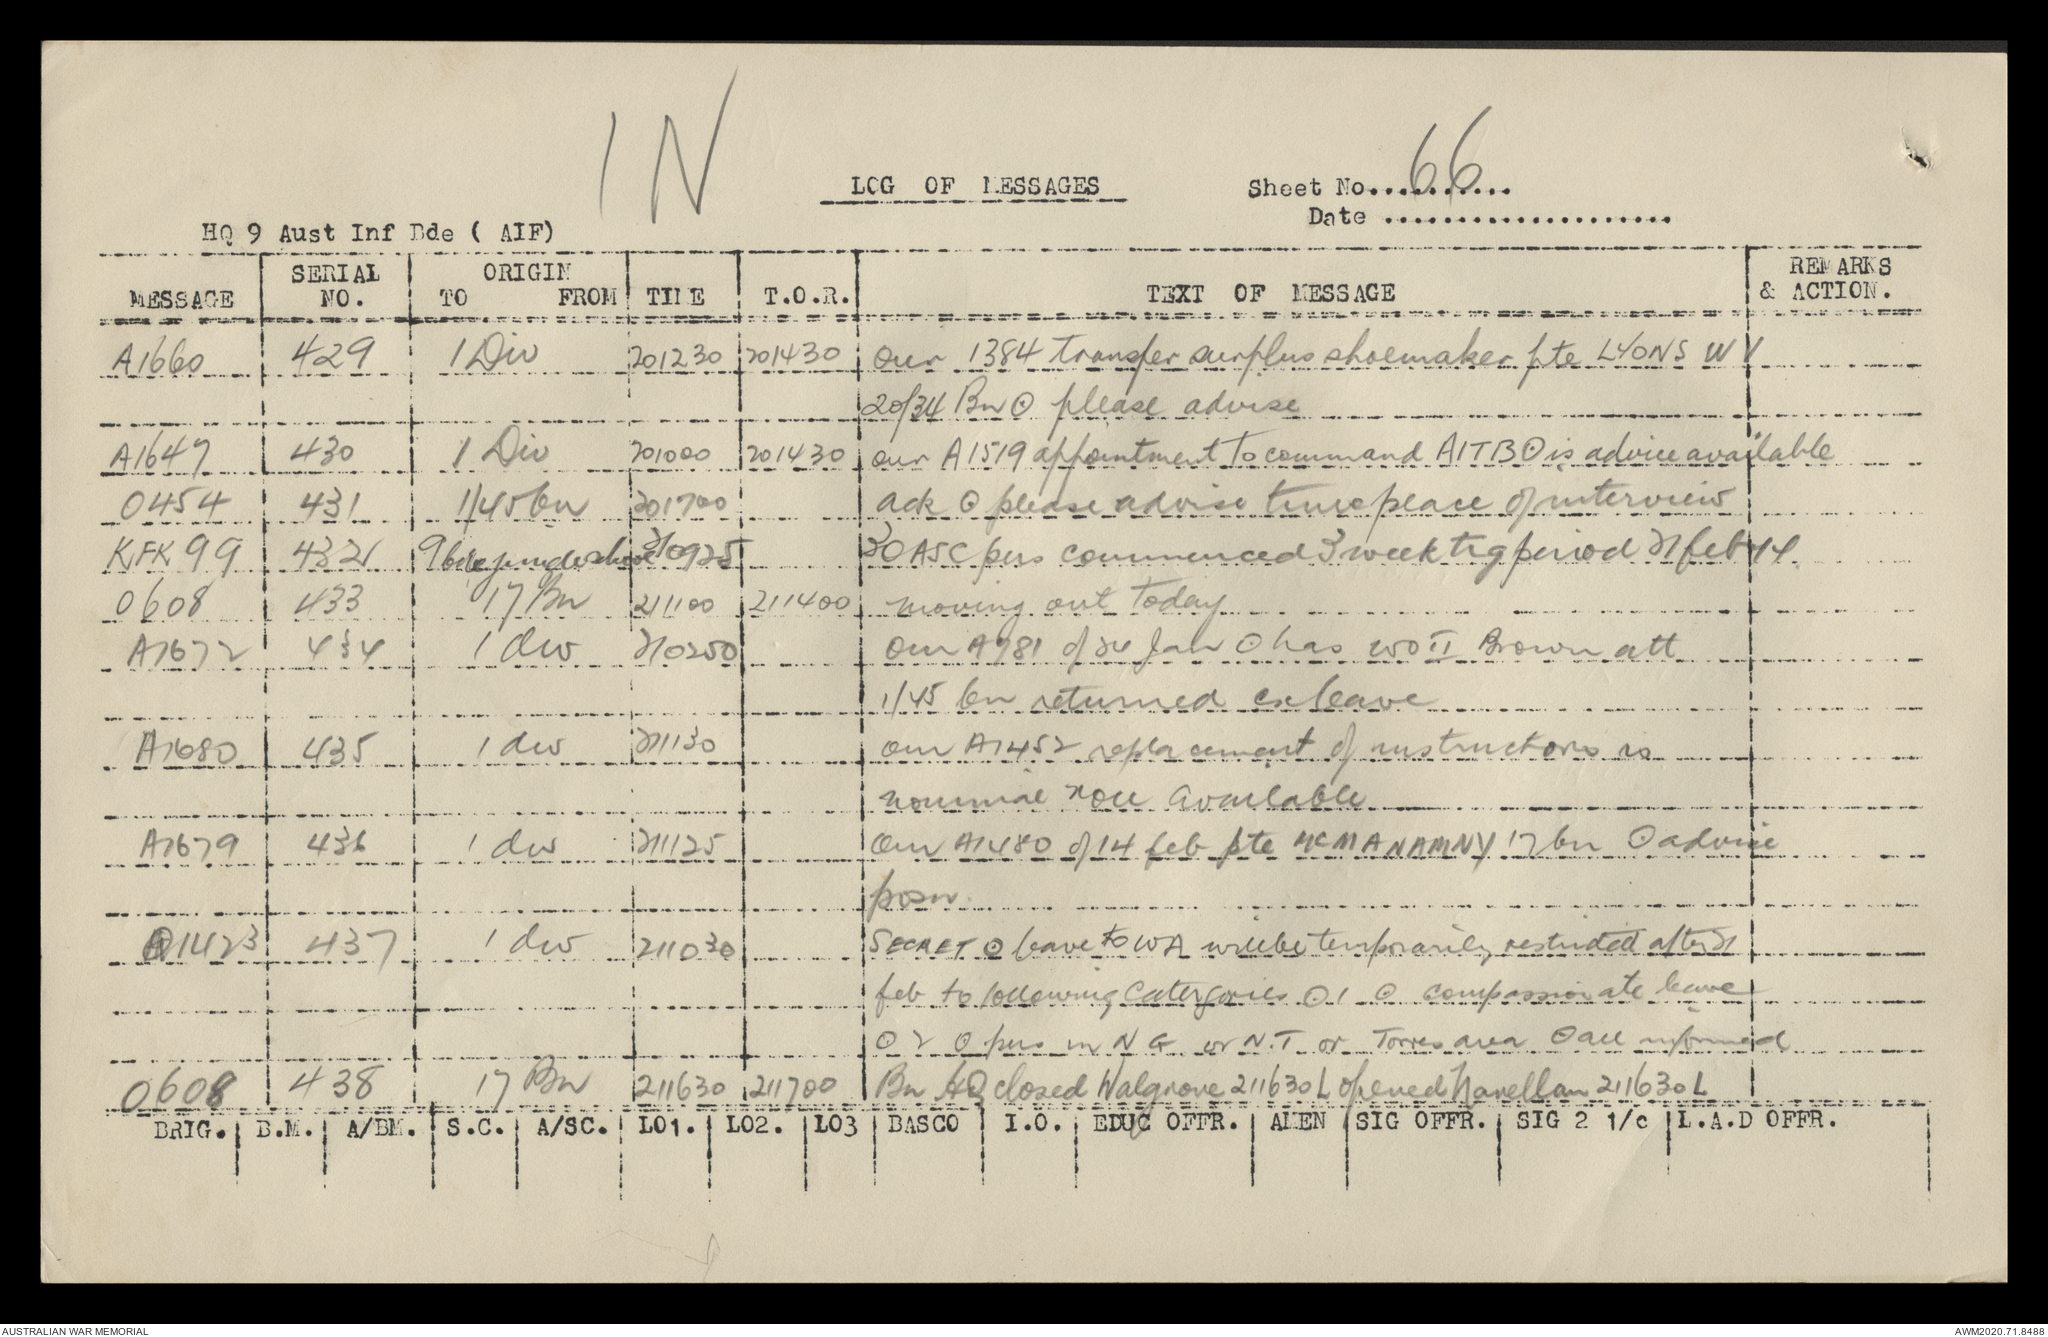 IN
LOG OF MESSAGES
Sheet No. 66
Date ....................
HQ 9 Aust Inf Bde ( AIF)
MESSAGE SERIAL NO. ORIGIN TO FROM TIME T.O.R. TEXT OF MESSAGE REMARKS & ACTION.
A1660 429 1 Div 201230 201430 our 1384 transfer surplus shoemaker pte LYONS W V
20/34 Bn ⊙ please advise
A1647 430 1 Div 201000 201430 our A1519 appointment to command AITB ⊙ is advice available
0454 431 1/45 bn 201700 ack ⊙ please advise time place of interview
KFK 99 432 9 bde 210925 30 ASC pers commenced 3 week trg period 21 feb 44.
0608 433 17 Bn 211100 211400 moving out today
A1672 434 1 div 210250 our A981 of 24 Jan ⊙ has WO II Brown att
1/45 bn returned ex leave
A1680 435 1 div 211130 our A1452 replacement of instructors is
nominal roll available
A1679 436 1 div 211125 Our A1480 of 14 feb pte MCMANAMNY 17 bn ⊙ advise
posn
Q1423 437 1 div 211030 SECRET ⊙ leave to WA will be temporarily restricted after 21
feb to following catergories ⊙ 1 ⊙ compassionate leave
⊙ 2 ⊙ pers in N G or N.T or Torres area ⊙ all informed
0608 438 17 Bn 211630 211700 Bn HQ closed Walgrove 211630 L opened Narellan 211630 L
BRIG. B.M. A/BM. S.C. A/SC. LO1. LO2. LO3 BASCO I.O. EDUC OFFR. AMEN SIG OFFR. SIG 2 1/c L.A.D OFFR.
AUSTRALIAN WAR MEMORIAL
AWM2020.71.8488